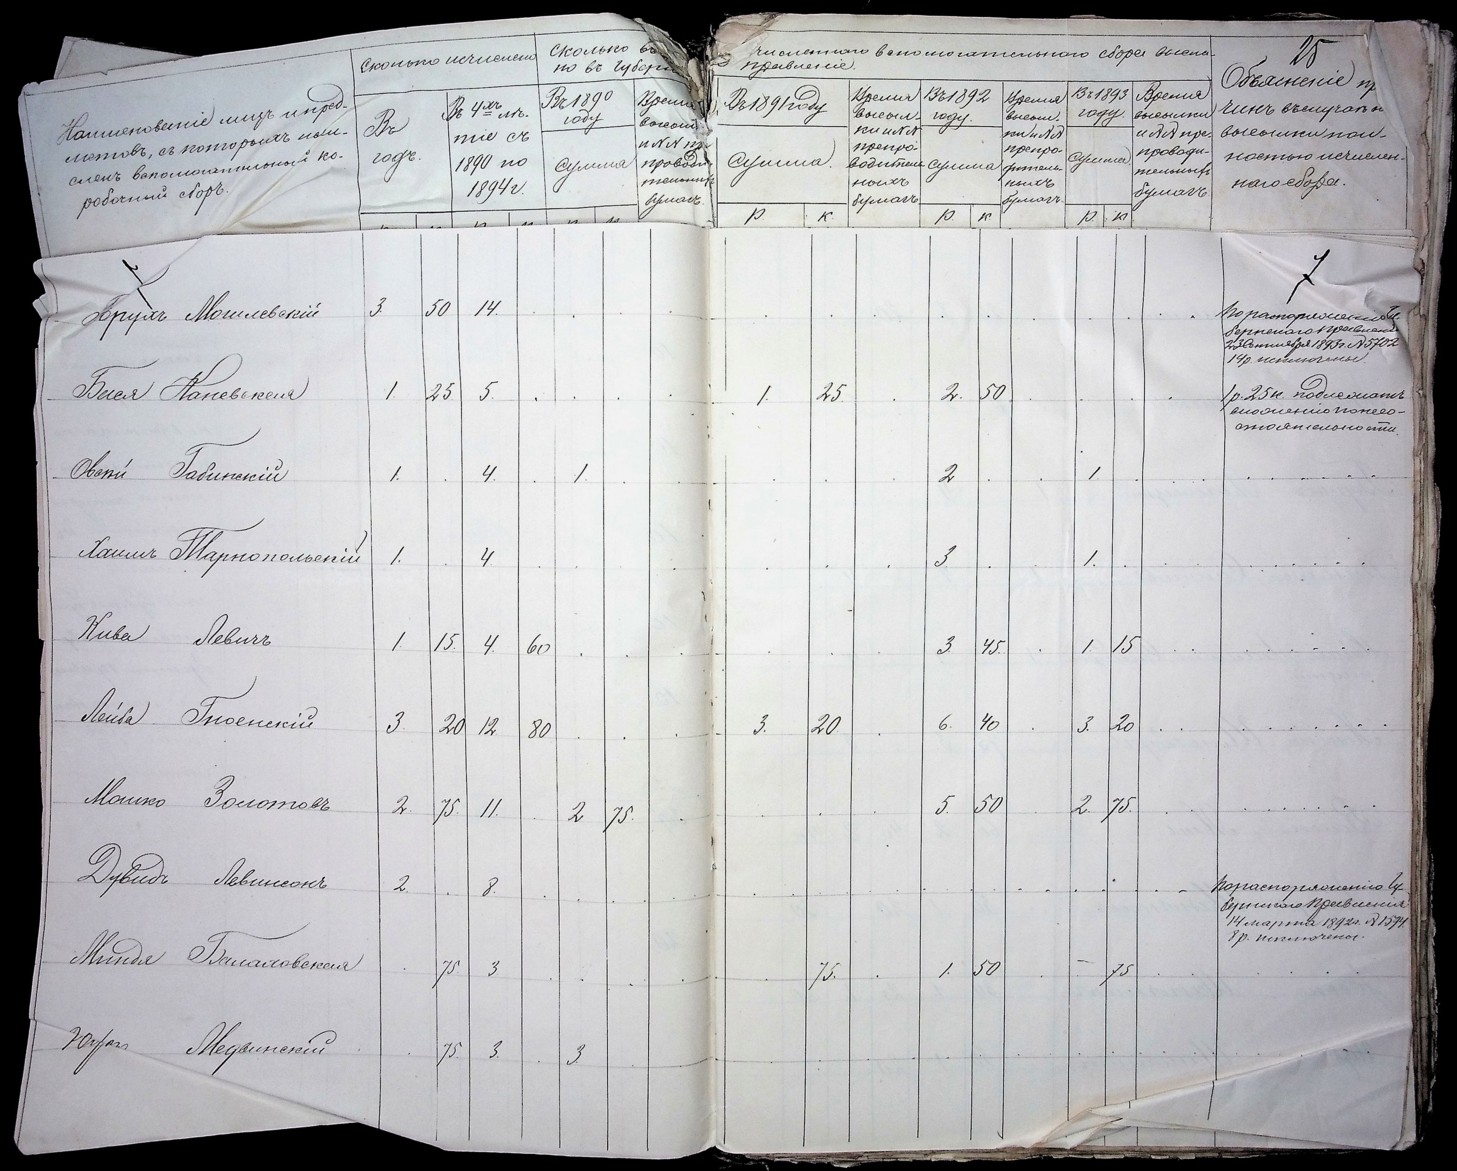 25
Наименованіе лицъ и пред-
метовъ, съ которыхъ исчи-
сленъ вспомогательный ко-
робочный сборъ.
Сколько исчислено
Въ
годъ.
Въ 4хъ лѣ-
тіе съ
1890 по
1894 г.
Сколько въ
но въ Губерн
Въ 1890
году
Сумма
Время
высыл
и №№ пр
провод
тельныхъ
бумагъ.
численнаго вспомогательнаго сбора высла-
Правленіе.
Въ 1891 году
Сумма.
р. к.
Время
высыл-
ки и №№
препро-
водитель
ныхъ
бумагъ
Въ 1892
году.
Сумма
р к
Время
высыл.
ки и №№
препро-
дитель-
ныхъ
бумагъ.
Въ 1893
году.
Сумма
р. к.
Время
высылки
и №№ пре-
проводи-
тельныхъ
бумагъ.
Объясненіе пр
чинъ
высылки пол-
ностью исчислен-
наго сбора.
7
Борухъ Могилевскій 3. 50 14. По распоряженію Гу-
бернскаго Правленія
23 Сентября 1893 г. №5702
14 р. исключены
Бася Каневская 1. 25 5. 1. 25 2. 50 1 р. 25 к. подлежатъ
сложенію по несо-
стоятельности.
Овсій Габинскій 1. 4. 1. 2 1.
Хаимъ Тарнопольскій 1. 4 3 1.
Кива Левичъ 1 15. 4. 60 3. 45. 1. 15
Лейба Гноенскій 3. 20 12 80 3. 20 6. 40 3. 20
Мошко Золотовъ 2. 75. 11. 2 75. 5. 50 2. 75.
Дувидъ Левинсонъ 2. 8. По распоряженію Гу-
бернскаго Правленія
14 марта 1892 г. №1594
8 р. исключены.
Миндя Балаловская 75 3 75. 1. 50 – 75
Медвинскій 75 3. 3.